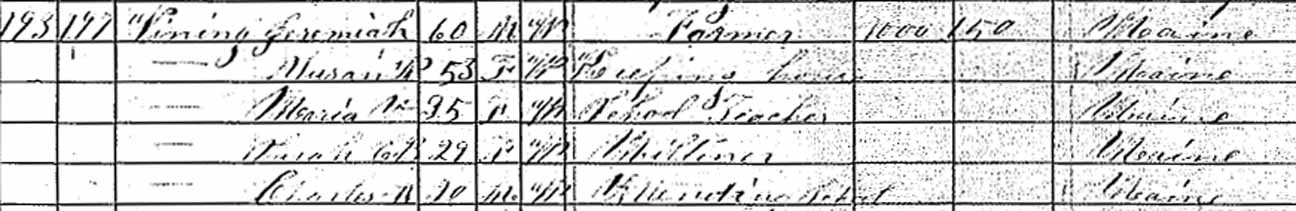 193 197 Vining Jeremiah 60 M W Farmer 1000 150 Maine
— 53 F W Keeping house Maine
— Maria 35 F W School Teacher Maine
— Sarah 29 F W Milliner Maine
— Charles M W Attending School Maine